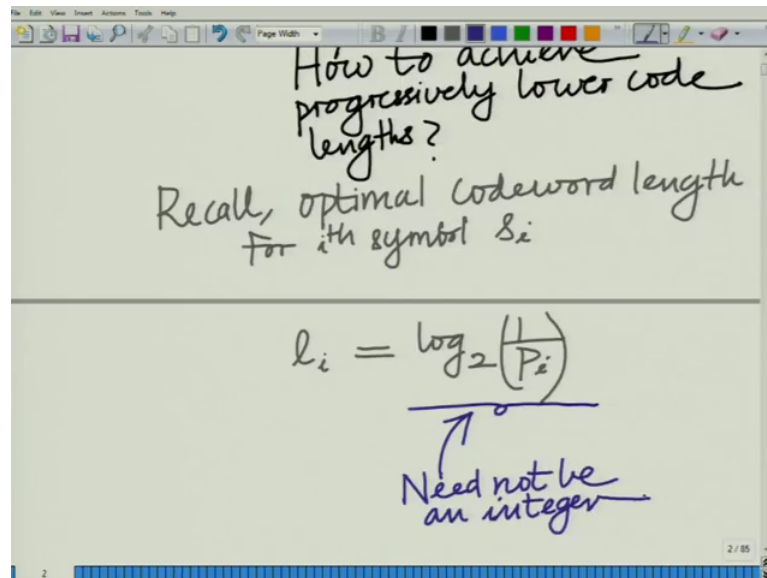 File Edit View Insert Actions Tools Help
Page Width
B I
How to achieve
progressively lower code
lengths?
Recall, optimal codeword length
for ith symbol si
li = log2(1/Pi)
Need not be
an integer
2 / 85
2